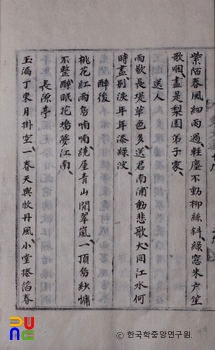 紫陌春風細雨過輕塵不動柳絲斜綠窓朱戶笙
歌咽盡是梨園弟子家
送人
雨歇長堤草色多送君南浦動悲歌大同江水何
時盡別淚年年添綠波
醉後
桃花紅雨鳥喃喃繞屋靑山間翠嵐一頂烏紗慵
不整醉眠花塢夢江南
長源亭
玉漏丁東月掛空一春天與牡丹風小堂捲箔春
한국학중앙연구원